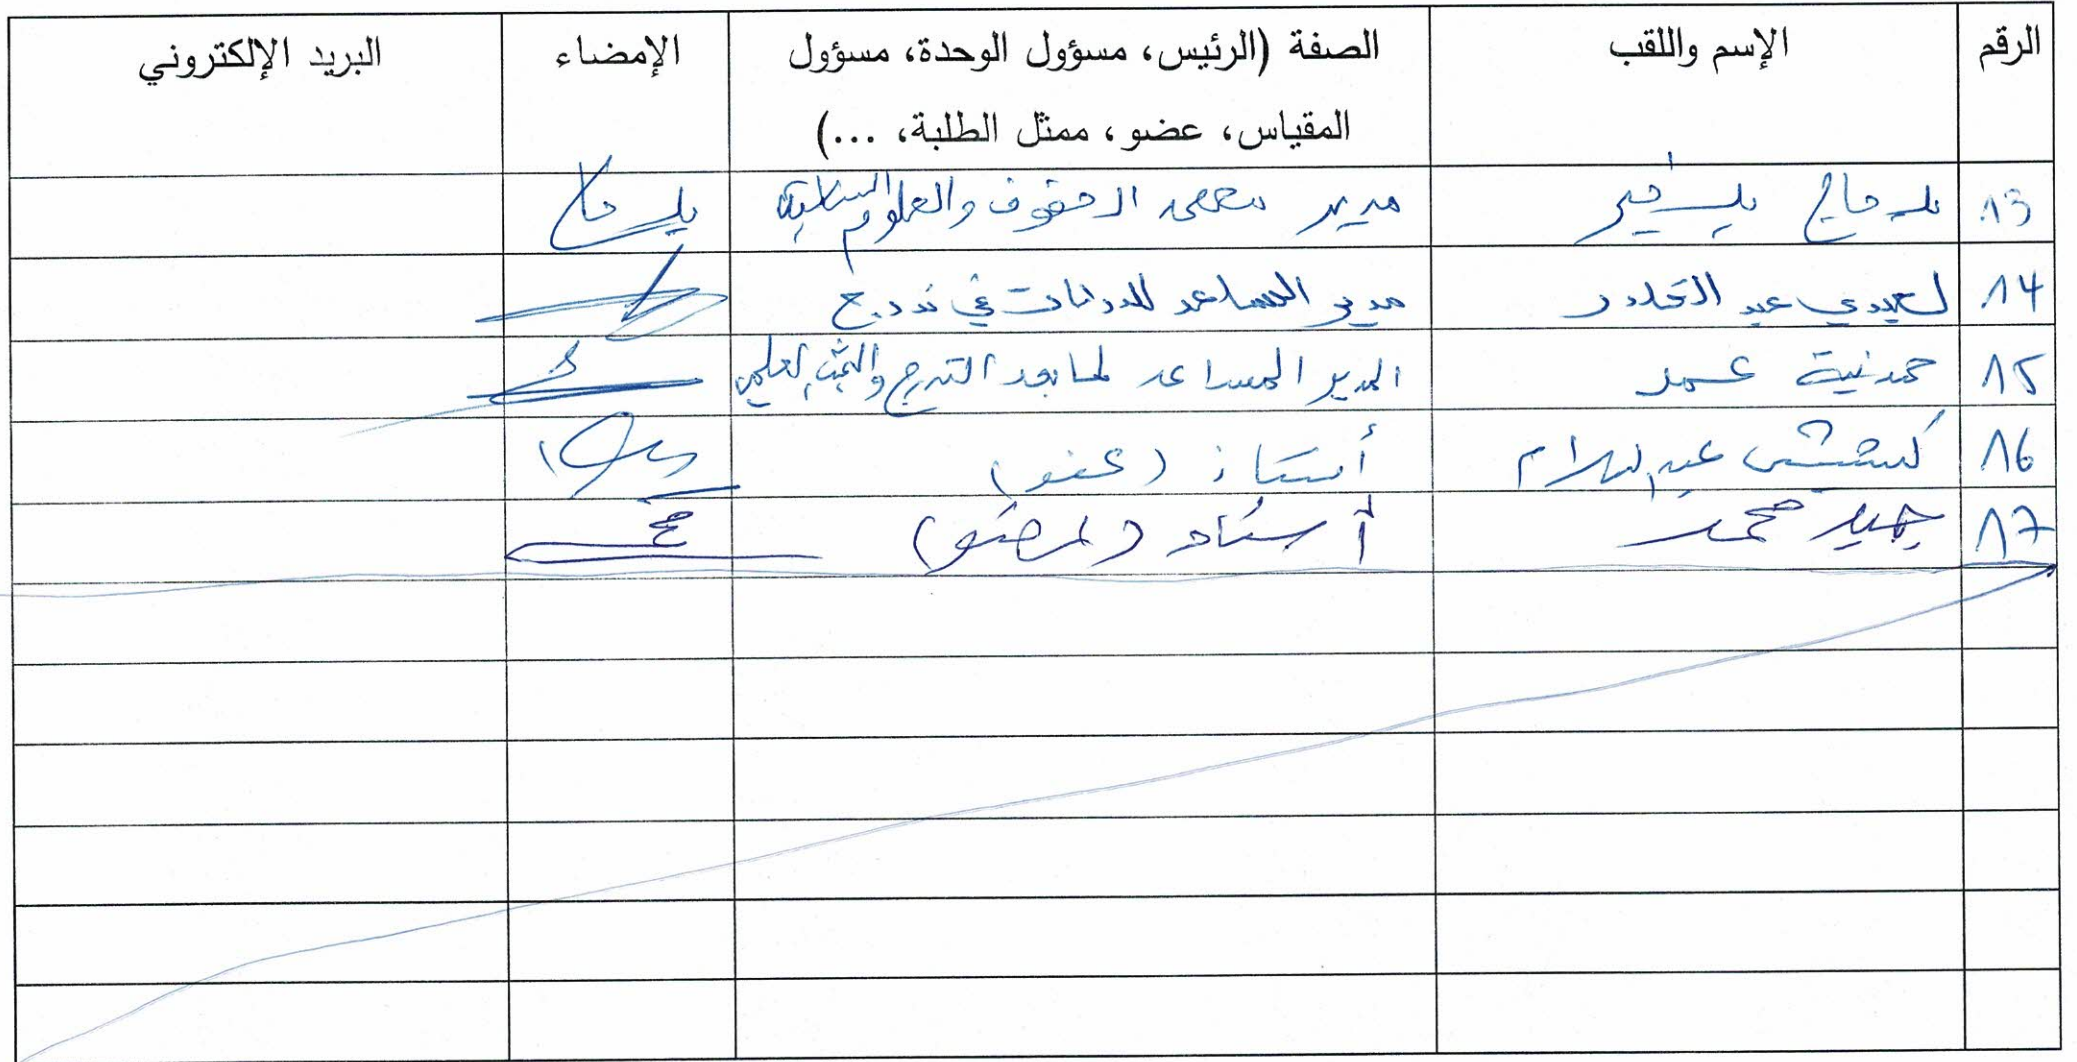 الرقم الإسم واللقب الصفة (الرئيس، مسؤول الوحدة، مسؤول الإمضاء البريد الإلكتروني
المقياس، عضو، ممثل الطلبة، ...)
13. بلحاج مدير معهد الحقوق والعلوم السياسية
14. لعيدي عبد القادر مدير المساعد للدراسات في تدرج
15 حمدنية عمر المدير المساعد لما بعد التدرج والبحث العلمي
16 عبد السلام أستاذ (عضو)
17 محمد أستاذ (عضو)